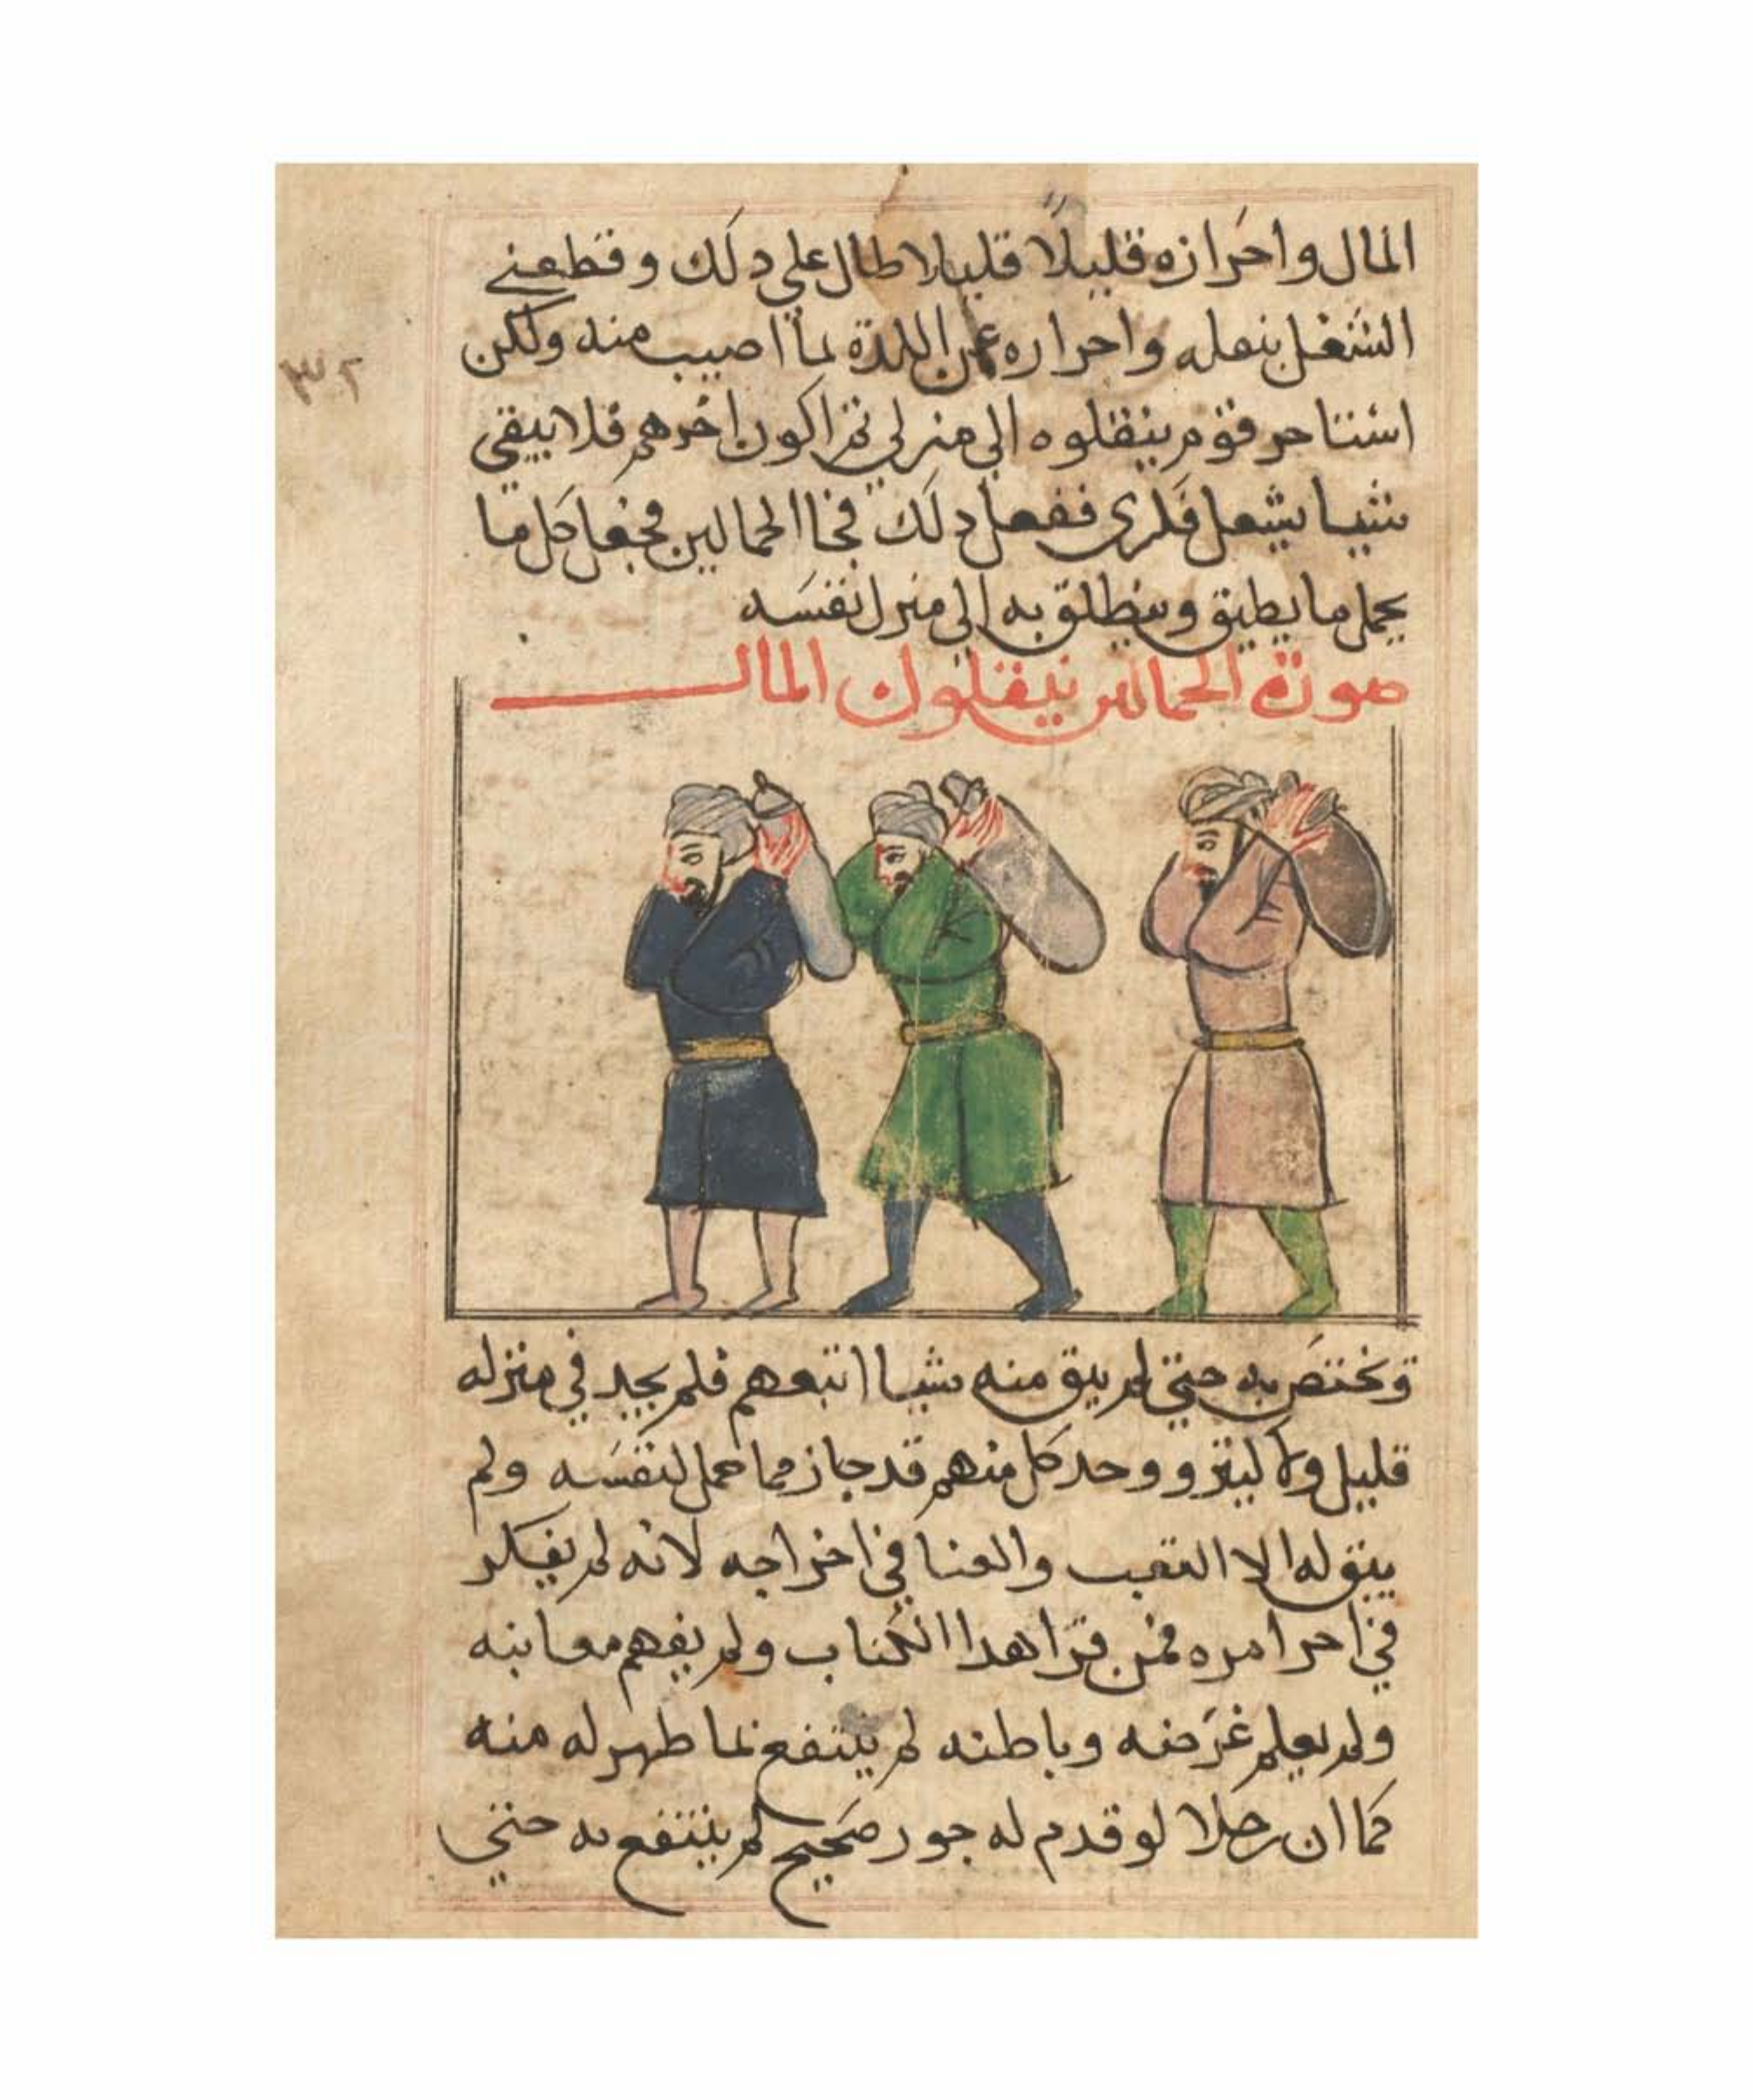 المال واحرازه قليلا قليلا طال علي دلك وقطعني
الشغل بنقله واحرازه عن اللدة بما اصيب منه ولكن
استاجر قوم ينقلوه الي منزلي ثم اكون اخرهم فلا يبقي
شيا يشغل فكري ففعل دلك فجا الحمالين فجعل كل ما
يحمل ما يطيق وينطلق به الي منزل نفسه
صورة الحمالين ينقلون المال
٣٢
وتختص به حتي لم يبق منه شيا اتبعهم فلم يجد في منزله
قليل ولا كثير ووجد كل منهم قد حاز مما حمل لنفسه ولم
يبق له الا التعب والعنا في اخراجه لانه لم يفكر
في اخر امره فمن قرا هدا الكتاب ولم يفهم معانيه
ولم يعلم غرضه وباطنه لم ينتفع بما ظهر له منه
كما ان رجلا لو قدم له جوز صحيح لم ينتفع به حتي